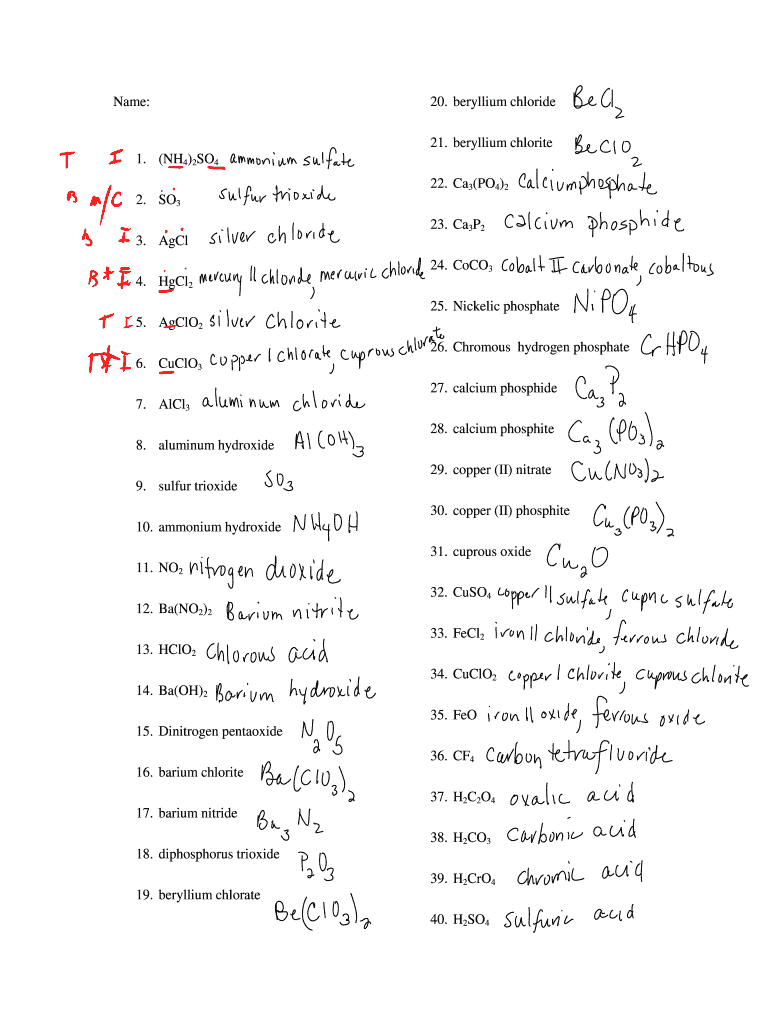 Name:
T I 1. (NH4)2SO4 ammonium sulfate
B M/C 2. SO3 sulfur trioxide
B I 3. AgCl silver chloride
B + I 4. HgCl2 mercury II chloride, mercuric chloride
T I 5. AgClO2 silver chlorite
I 6. CuClO3 copper I chlorate, cuprous chlorate
7. AlCl3 aluminum chloride
8. aluminum hydroxide Al(OH)3
9. sulfur trioxide SO3
10. ammonium hydroxide NH4OH
11. NO2 nitrogen dioxide
12. Ba(NO2)2 Barium nitrite
13. HClO2 Chlorous acid
14. Ba(OH)2 Barium hydroxide
15. Dinitrogen pentaoxide N2O5
16. barium chlorite Ba(ClO3)2
17. barium nitride Ba3N2
18. diphosphorus trioxide P2O3
19. beryllium chlorate Be(ClO3)2
20. beryllium chloride BeCl2
21. beryllium chlorite BeClO2
22. Ca3(PO4)2 Calcium phosphate
23. Ca3P2 Calcium phosphide
24. CoCO3 Cobalt II Carbonate, cobaltous
25. Nickelic phosphate NiPO4
26. Chromous hydrogen phosphate CrHPO4
27. calcium phosphide Ca3P2
28. calcium phosphite Ca3(PO3)2
29. copper (II) nitrate Cu(NO3)2
30. copper (II) phosphite Cu3(PO3)2
31. cuprous oxide Cu2O
32. CuSO4 copper II sulfate, cupric sulfate
33. FeCl2 iron II chloride, ferrous chloride
34. CuClO2 copper I Chlorite, cuprous chlorite
35. FeO iron II oxide, ferrous oxide
36. CF4 Carbon tetrafluoride
37. H2C2O4 oxalic acid
38. H2CO3 Carbonic acid
39. H2CrO4 chromic acid
40. H2SO4 Sulfuric acid